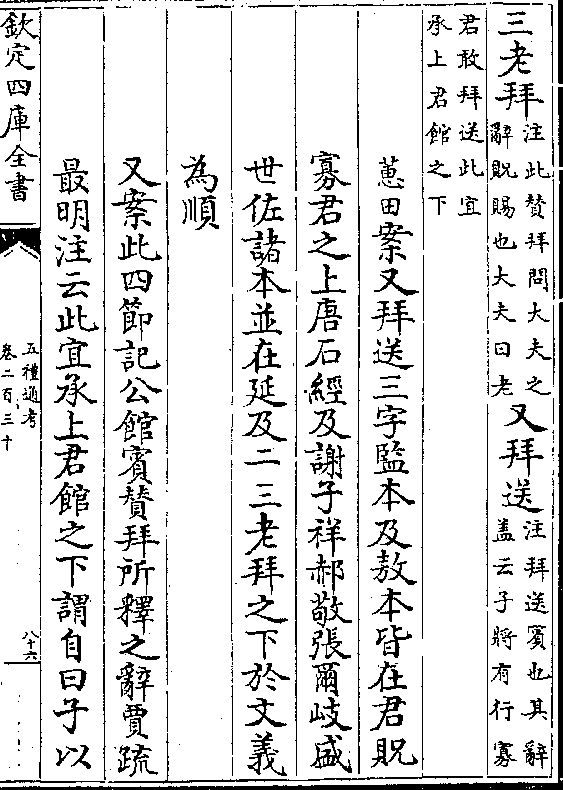 三老拜注此贊拜問大夫之辭貺賜也大夫曰老又拜送注拜送賓也其辭盖云子將有行寡
君敢拜送此宜承上君館之下
蕙田案又拜送三字監本及敖本皆在君貺
寡君之上唐石經及謝子祥郝敬張爾岐盛
世佐諸本並在延及二三老拜之下於文義
為順
又案此四節記公館賓贊拜所釋之辭賈疏
最明注云此宜承上君館之下謂自曰子以
欽定四庫全書
五禮通考
卷二百三十
八十六